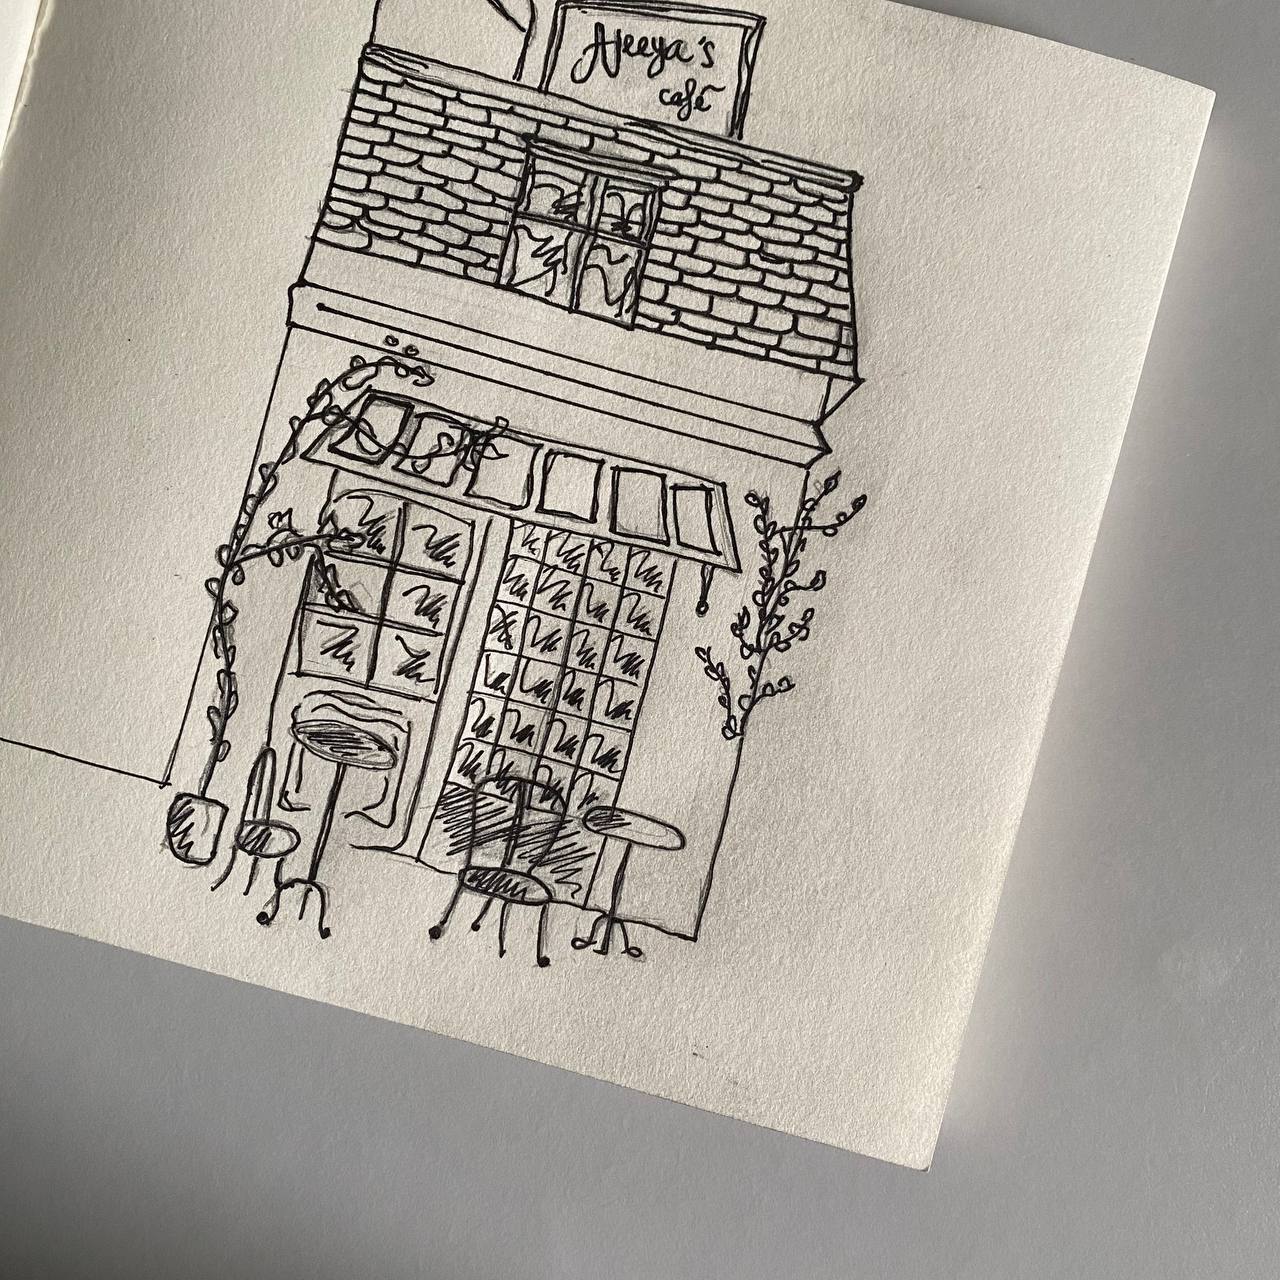 Ajeeya's
café